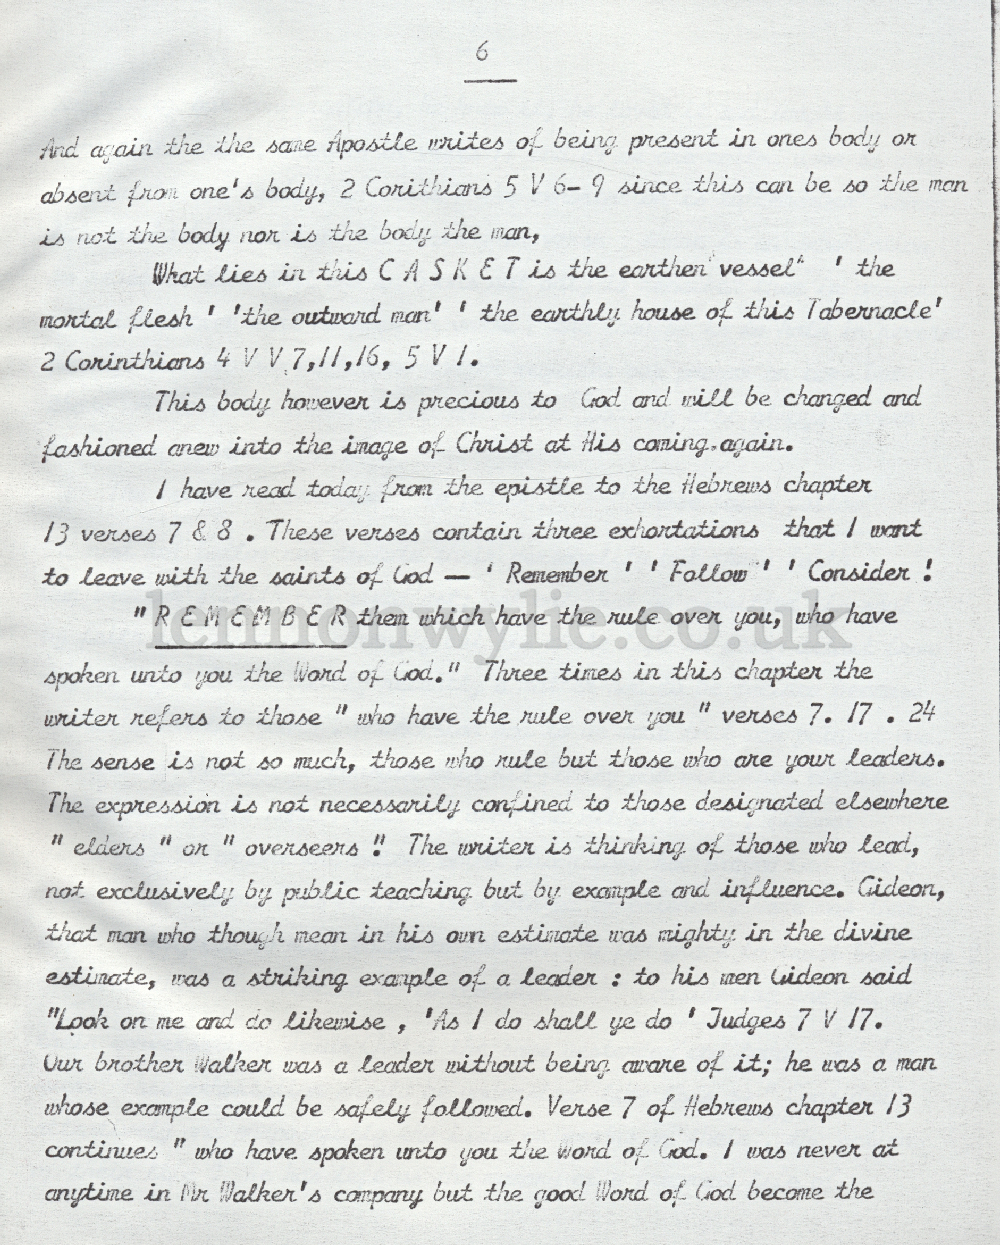 6
And again the the same Apostle writes of being present in ones body or
absent from one's body, 2 Corithians 5 V 6- 9 since this can be so the man
is not the body nor is the body the man,
What lies in this C A S K E T is the earthen vessel" ' the
mortal flesh ' 'the outward man' ' the earthly house of this Tabernacle'
2 Corinthians 4 V V 7,11,16, 5 V 1.
This body however is precious to God and will be changed and
fashioned anew into the image of Christ at His coming.again.
I have read today from the epistle to the Hebrews chapter
13 verses 7 & 8 . These verses contain three exhortations that I want
to leave with the saints of God — ' Remember ' ' Follow ' ' Consider !
" R E M E M B E R them which have the rule over you, who have
lennonwylie.co.uk
spoken unto you the Word of God." Three times in this chapter the
writer refers to those " who have the rule over you " verses 7. 17 . 24
The sense is not so much, those who rule but those who are your leaders.
The expression is not necessarily confined to those designated elsewhere
" elders " or " overseers ". The writer is thinking of those who lead,
not exclusively by public teaching but by example and influence. Gideon,
that man who though mean in his own estimate was mighty in the divine
estimate, was a striking example of a leader : to his men Gideon said
"Look on me and do likewise , 'As I do shall ye do ' Judges 7 V 17.
Our brother Walker was a leader without being aware of it; he was a man
whose example could be safely followed. Verse 7 of Hebrews chapter 13
continues " who have spoken unto you the Word of God. I was never at
anytime in Mr Walker's company but the good Word of God became the